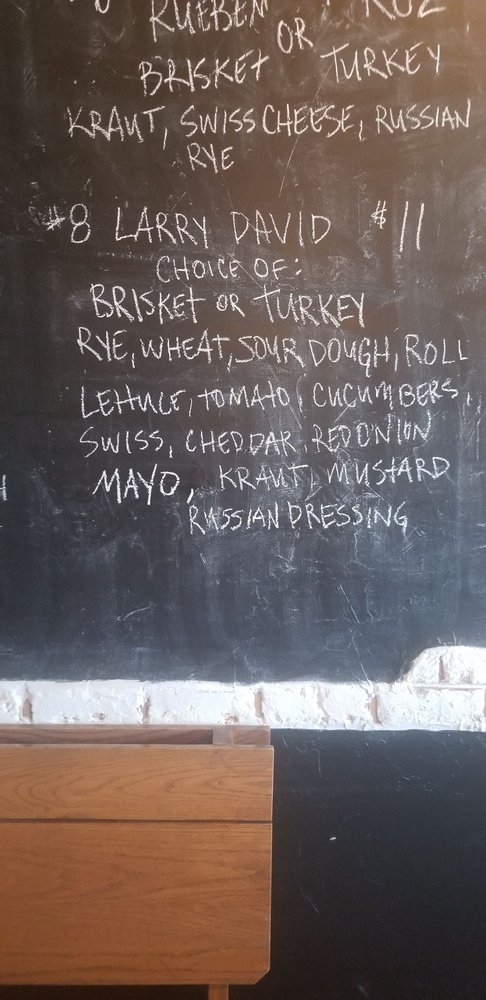 RUEBEN
OR
BRISKET TURKEY
KRAUT, SWISS CHEESE, RUSSIAN
RYE
#8 LARRY DAVID $11
CHOICE OF:
BRISKET OR TURKEY
RYE, WHEAT, SOUR DOUGH, ROLL
LETTUCE, TOMATO, CUCUMBERS,
SWISS, CHEDDAR, RED ONION
MAYO, KRAUT, MUSTARD
RUSSIAN DRESSING